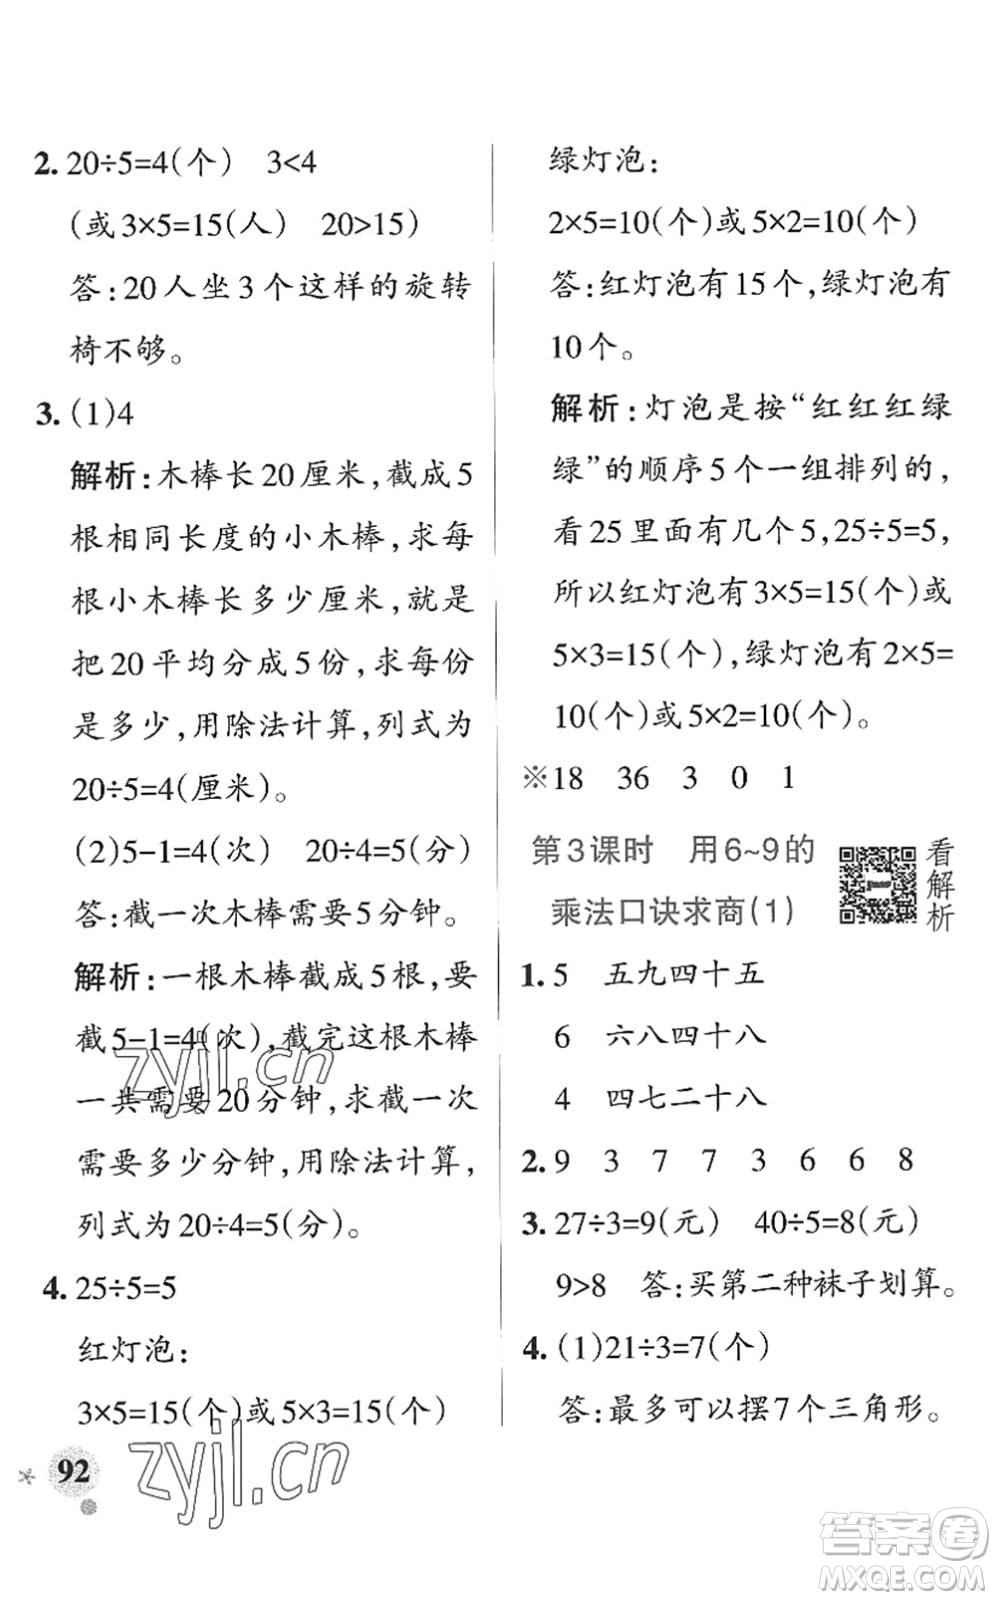 2. 20÷5=4(个) 3<4
(或3×5=15(人) 20>15)
答:20人坐3个这样的旋转
椅不够。
3. (1)4
解析:木棒长20厘米,截成5
根相同长度的小木棒,求每
根小木棒长多少厘米,就是
把20平均分成5份,求每份
是多少,用除法计算,列式为
20÷5=4(厘米)。
(2)5-1=4(次) 20÷4=5(分)
答:截一次木棒需要5分钟。
解析:一根木棒截成5根,要
截5-1=4(次),截完这根木棒
一共需要20分钟,求截一次
需要多少分钟,用除法计算,
列式为20÷4=5(分)。
4. 25÷5=5
红灯泡:
3×5=15(个)或5×3=15(个)
92
绿灯泡:
2×5=10(个)或5×2=10(个)
答:红灯泡有15个,绿灯泡有
10个。
解析:灯泡是按“红红红绿
绿”的顺序5个一组排列的,
看25里面有几个5,25÷5=5,
所以红灯泡有3×5=15(个)或
5×3=15(个),绿灯泡有2×5=
10(个)或5×2=10(个)。
※18 36 3 0 1
第3课时 用6~9的
乘法口诀求商(1)
看解析
1. 5 五九四十五
6 六八四十八
4 四七二十八
2. 9 3 7 7 3 6 6 8
3. 27÷3=9(元) 40÷5=8(元)
9>8 答:买第二种袜子划算。
4. (1)21÷3=7(个)
答:最多可以摆7个三角形。
zyjl.cn
zyjl.cn
答案卷
MXQE.COM